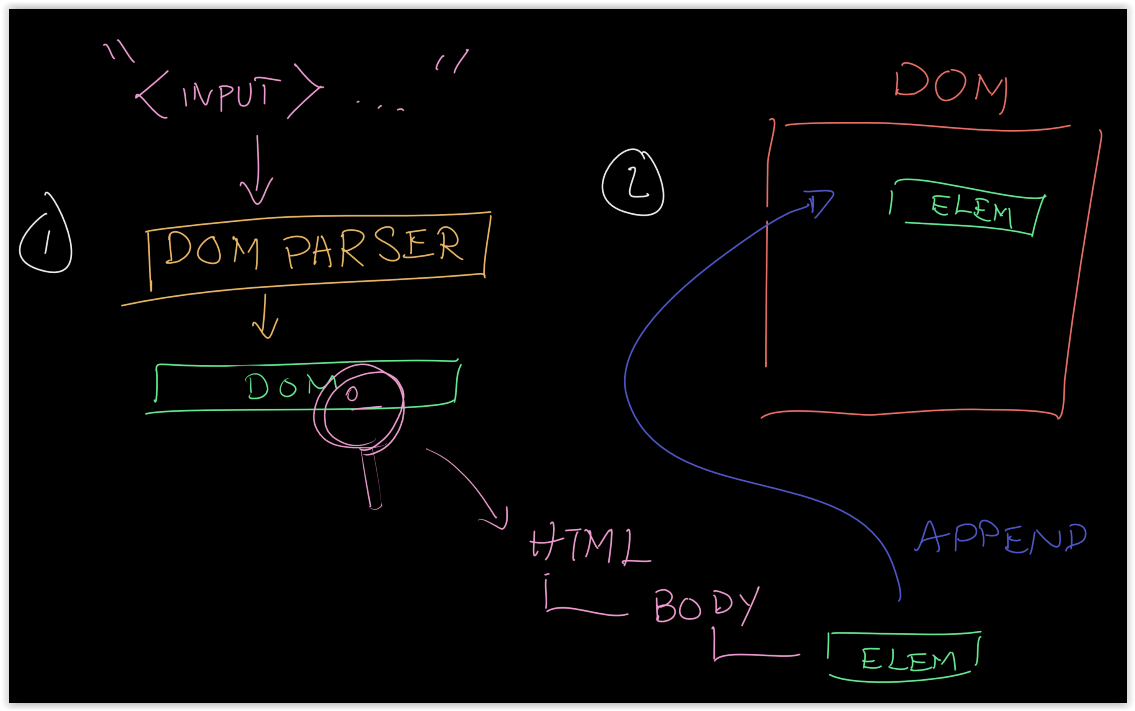 "<INPUT> ... "
1
DOM PARSER
DOM
HTML
BODY
ELEM
2
DOM
ELEM
APPEND